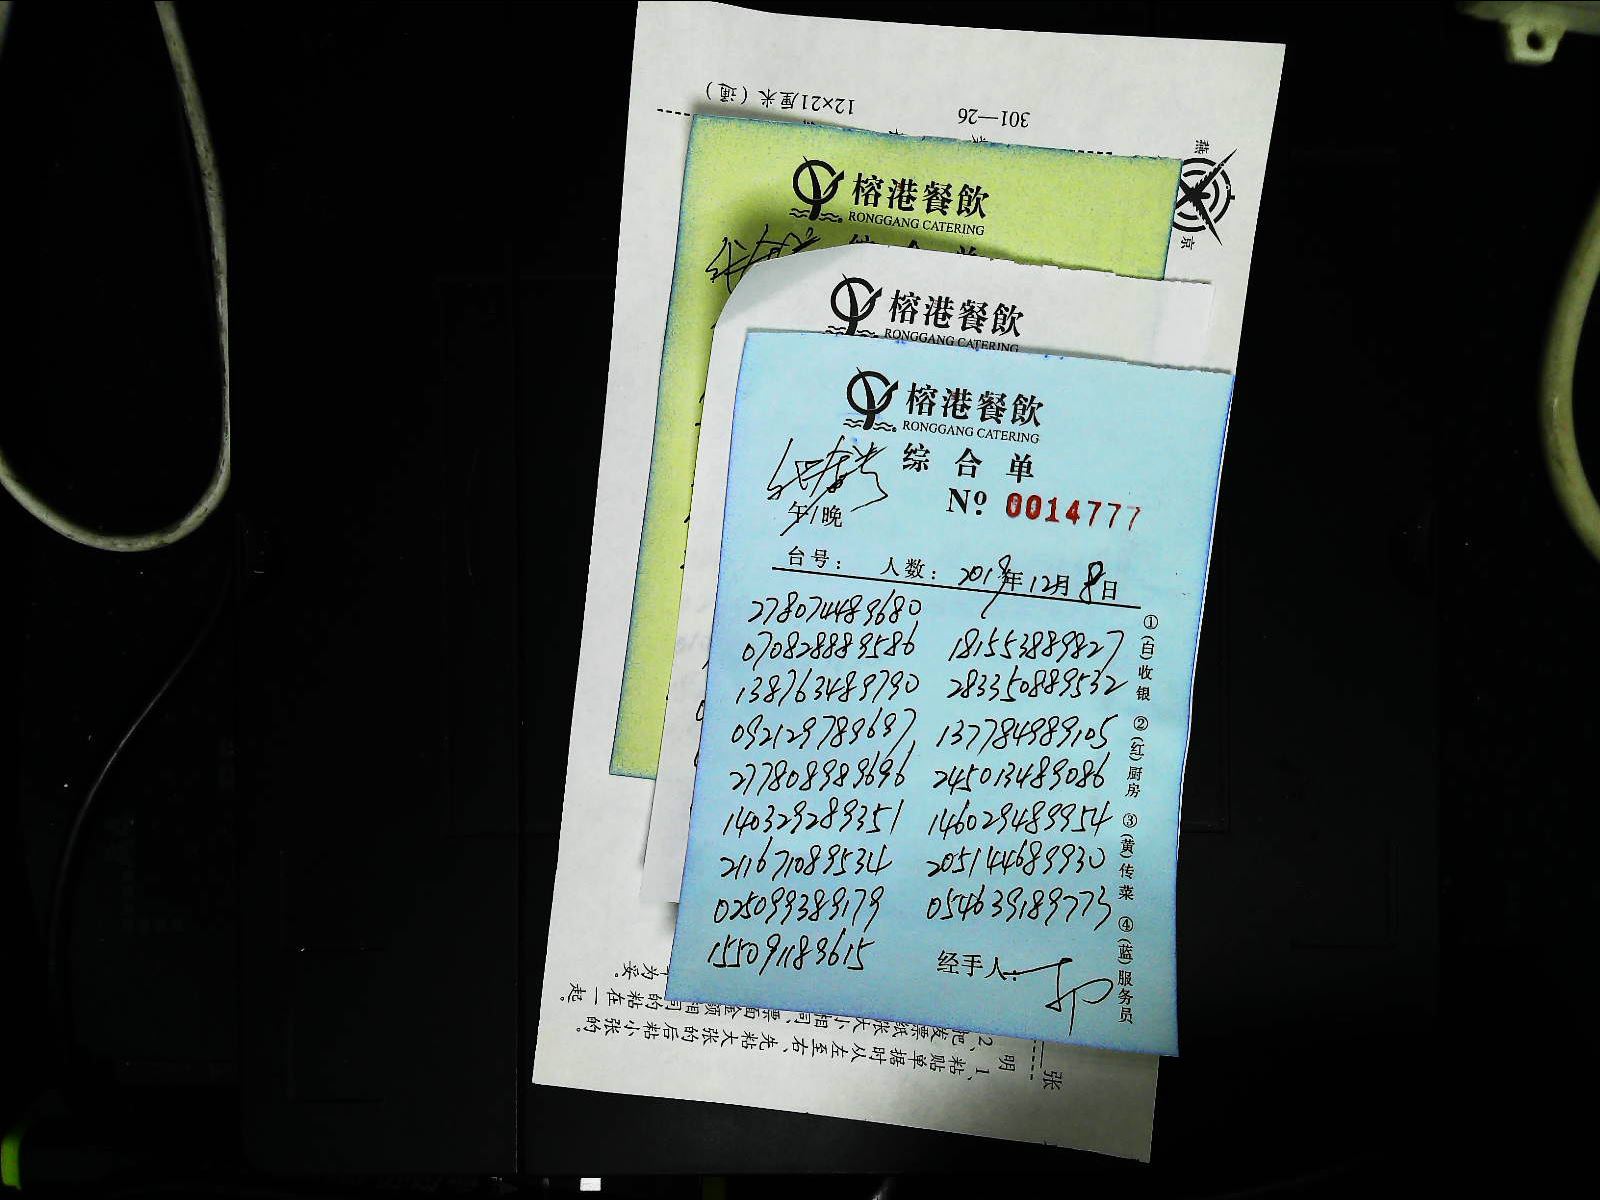 12×21厘米（通）
301—26
燕
京
榕港餐飲
RONGGANG CATERING
综合单
榕港餐飲
RONGGANG CATERING
榕港餐飲
RONGGANG CATERING
综合单
Nº 0014777
午/晚
台号： 人数： 2019年12月8日
278074489680
070828889586 181553889827
138763489790 283350889532
092129789697 137784989105
277808989696 245013489086
140329289351 146029489954
211671089534 205144689930
025099389179 054639189773
155091189615
经手人：
①(白)收银 ②(红)厨房 ③(黄)传菜 ④(蓝)服务员
1、粘贴单据时从左至右、先粘大张的后粘小张的。